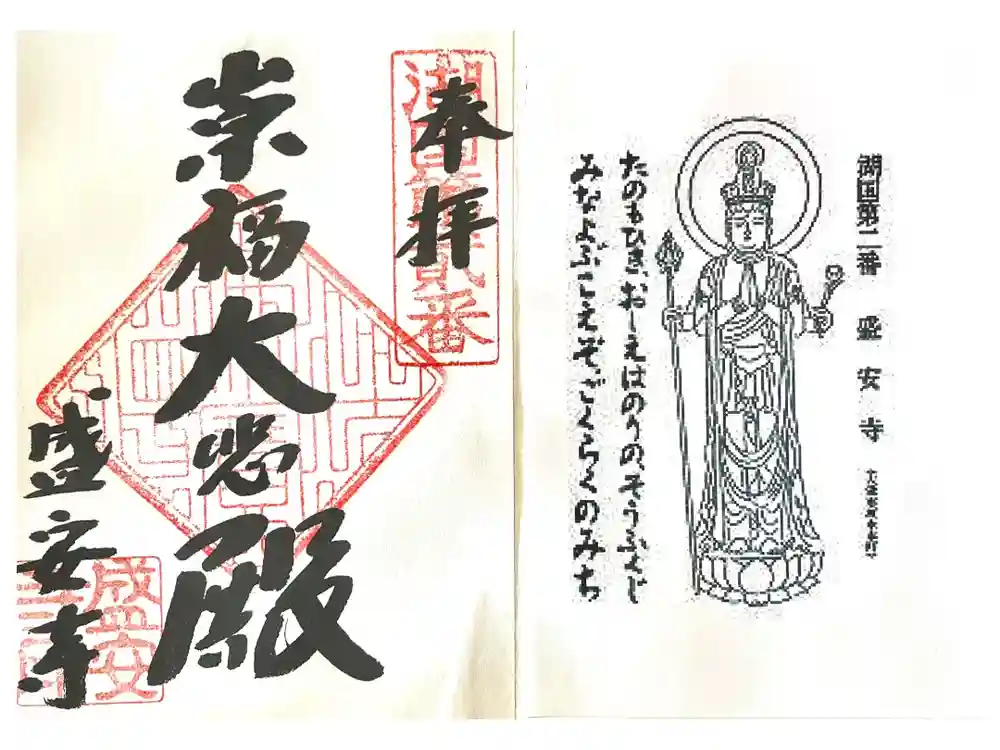 奉拝
湖国第貳番
崇福大悲殿
盛安寺
盛安寺
湖国第二番 盛安寺 大津市坂本町
たのもひきおしえはのりのそうふくじ
みなよぶこえぞごくらくのみち